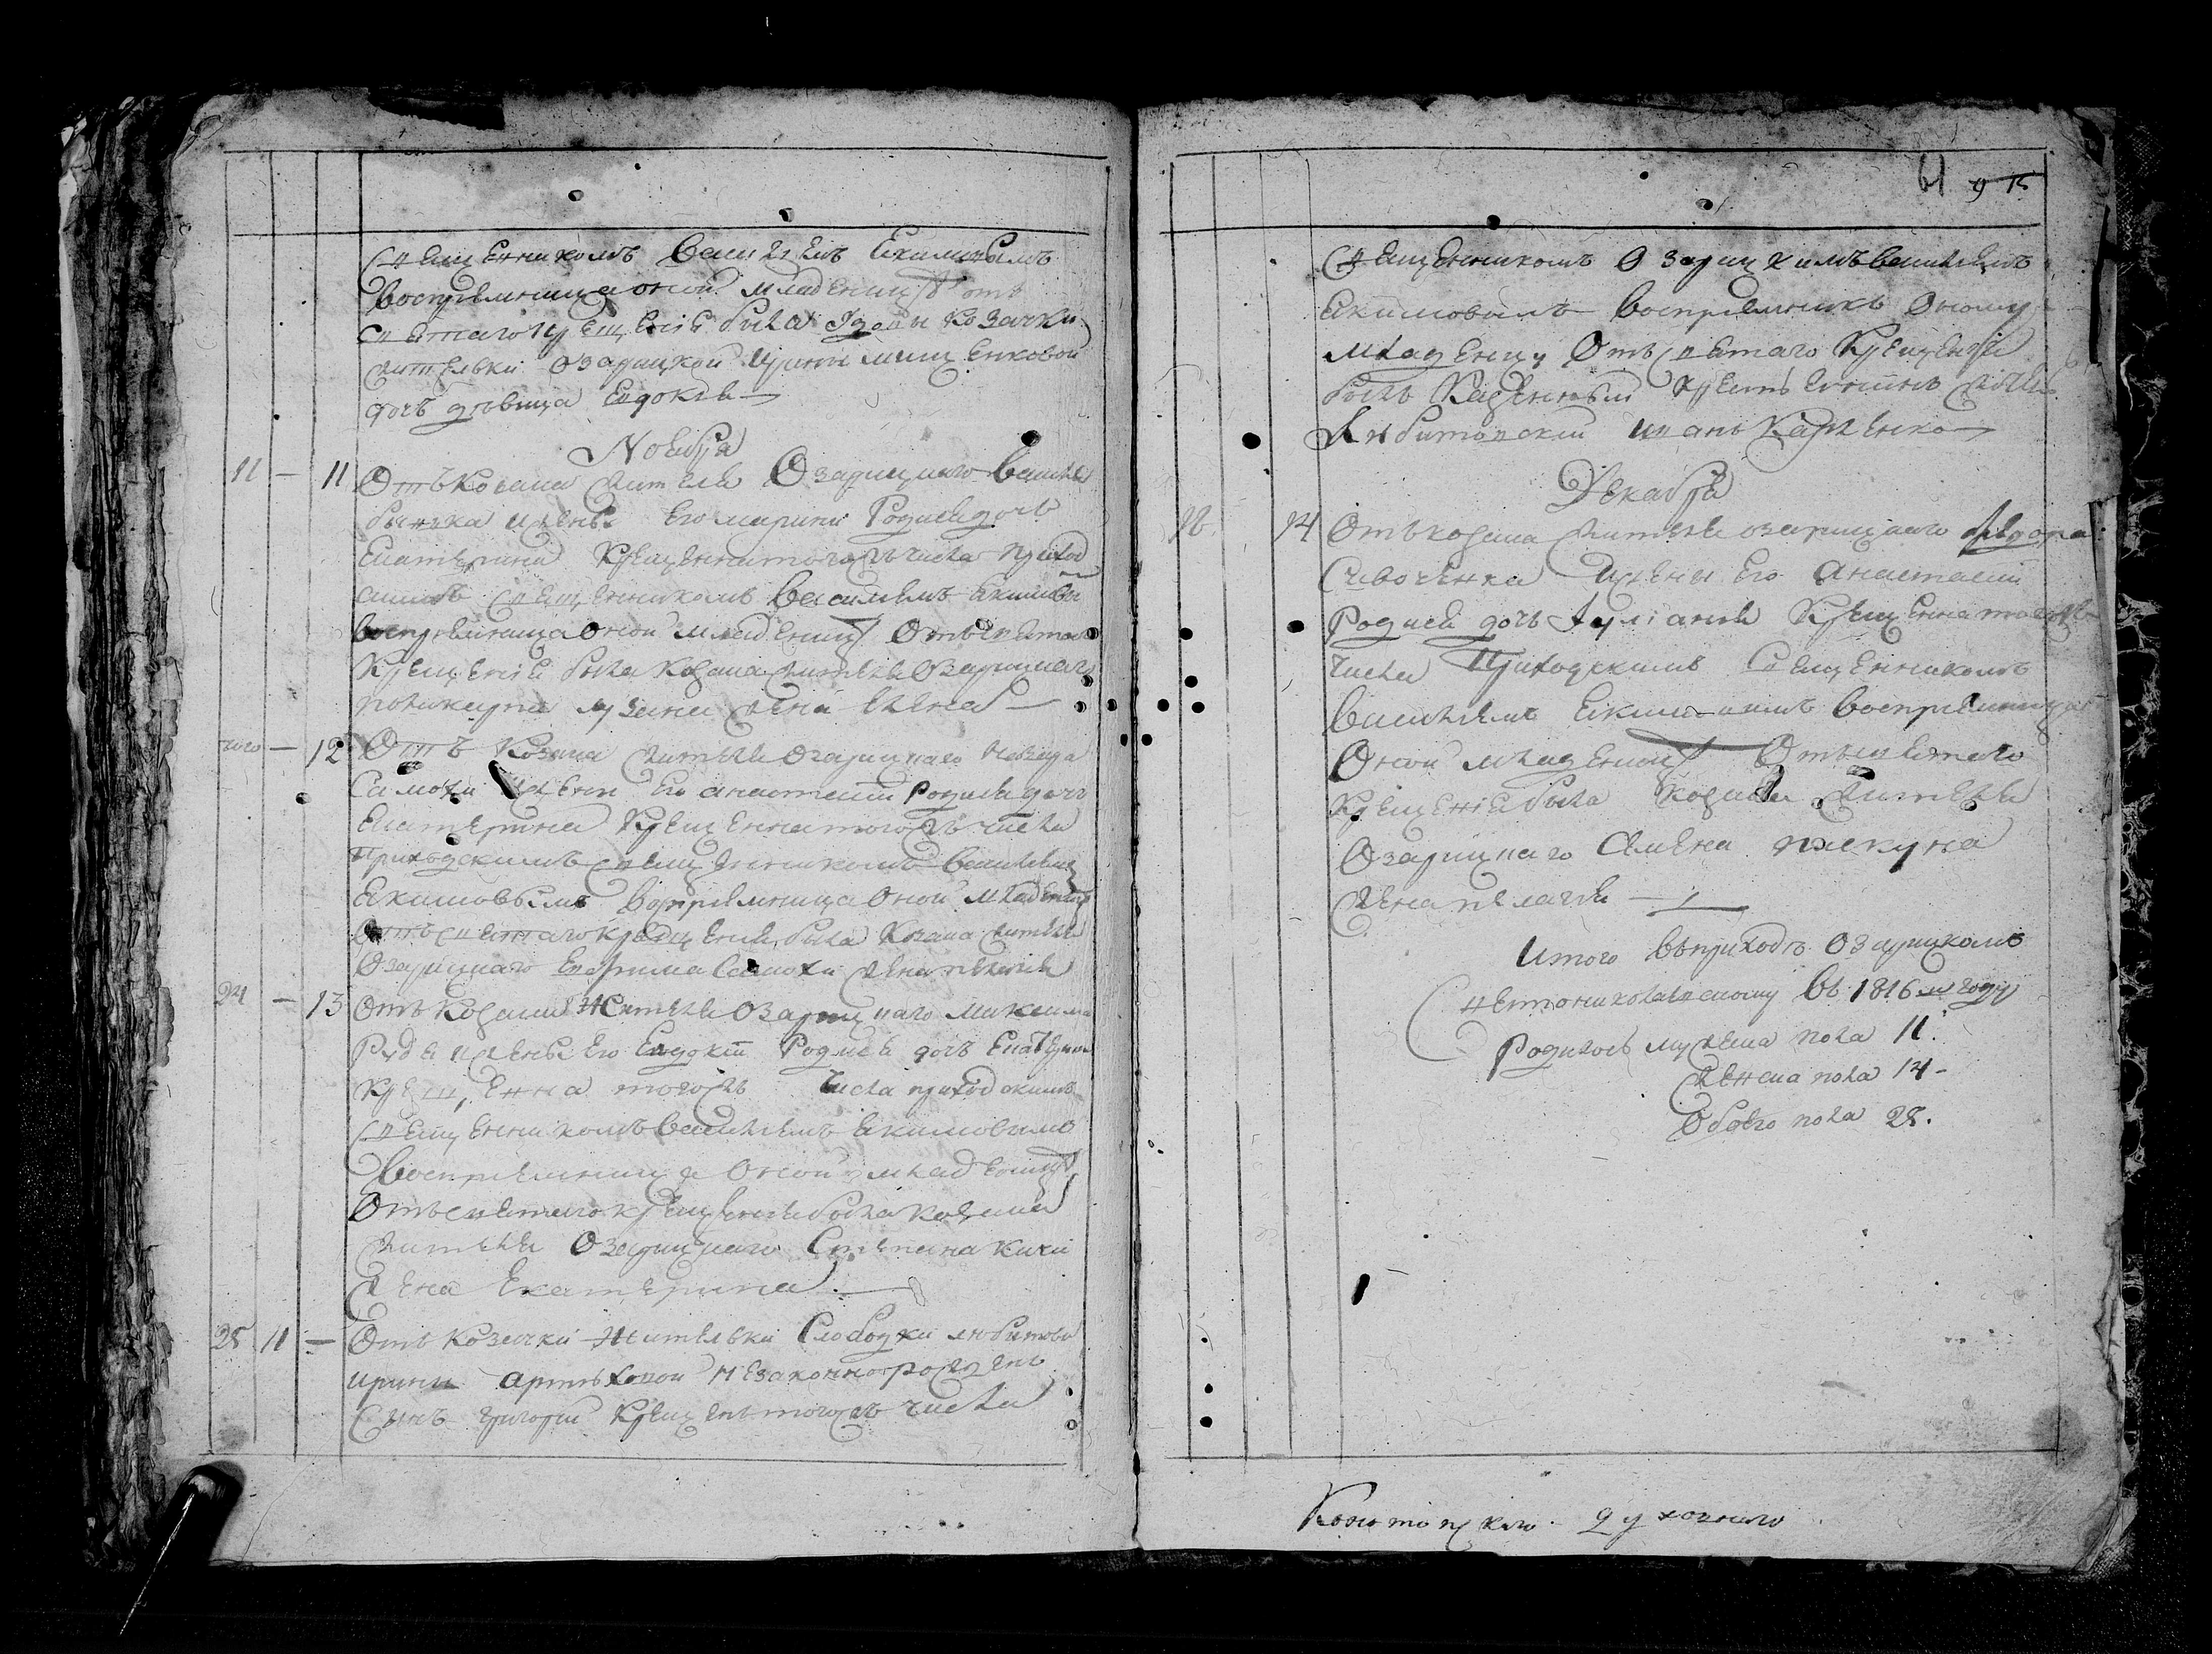 священникомъ Василіемъ Екимовымъ
воспріемница оной младеницѣ отъ
святаго крещенія была вдовы козачки
жителки озарицкой Ирины мищенковой
дочь дѣвица Евдокія
Ноября
11 — 11 Отъ козака жителя Озарицкаго Василія
и жены Его марини Родися дочь
Екатерина крещенна того жъ числа приход
скимъ священникомъ Василіемъ Екимовы
воспріемница оной младеницѣ Отъ святого
крещенія была козака жителя Озарицкаго
поликарпа жена Елена
того — 12 Отъ козака жителя Озарицкаго
Самохи и жени Его анастасіи родися дочь
Екатерина крещенна того жъ числа
Приходскимъ священникомъ василіемъ
Екимовымъ воспріемница оной младеницѣ
отъ святаго крещенія была козака жителя
Озарицкаго Евфима Самохи жена
24 — 13 Отъ козака жителя Озарицкаго Максима
и жены Его Евдокіи Родися дочь Екатерина
крещенна того жъ числа приходскимъ
священникомъ Василіемъ Екимовымъ
воспріемница оной младеницѣ
Отъ святаго крещенія была козака
жителя Озарицкаго Степана Кичи
жена Екатерина
28 11 — Отъ козачки жителки Слободки любитова
ирини артюховой незаконнорожденъ
Сынъ григорій крещенъ того жъ числа
61
священникомъ Озарицкимъ василіемъ
Екимовымъ воспріемникъ оному
младенцу Отъ святаго Крещенія
былъ Казенный крестьянинъ
Любитовскій иванъ Карпенко
Декабря
14 Отъ козака жителя озарицкаго Ѳедора
и жены Его анастасіи
Родися дочь Іуліанія Крещенна того жъ
числа Приходскимъ Священникомъ
Василіемъ Екимовимъ воспріемница
Оной младеницѣ Отъ святаго
крещенія была козака жителя
Озарицкаго Семена
жена пелагія
Итого въ приходѣ Озарицкомъ
Святониколаевскому въ 1816-м году
родилось мужеска пола 11.
женска пола 14 –
Обоего пола 25.
Конотопскаго духовнаго